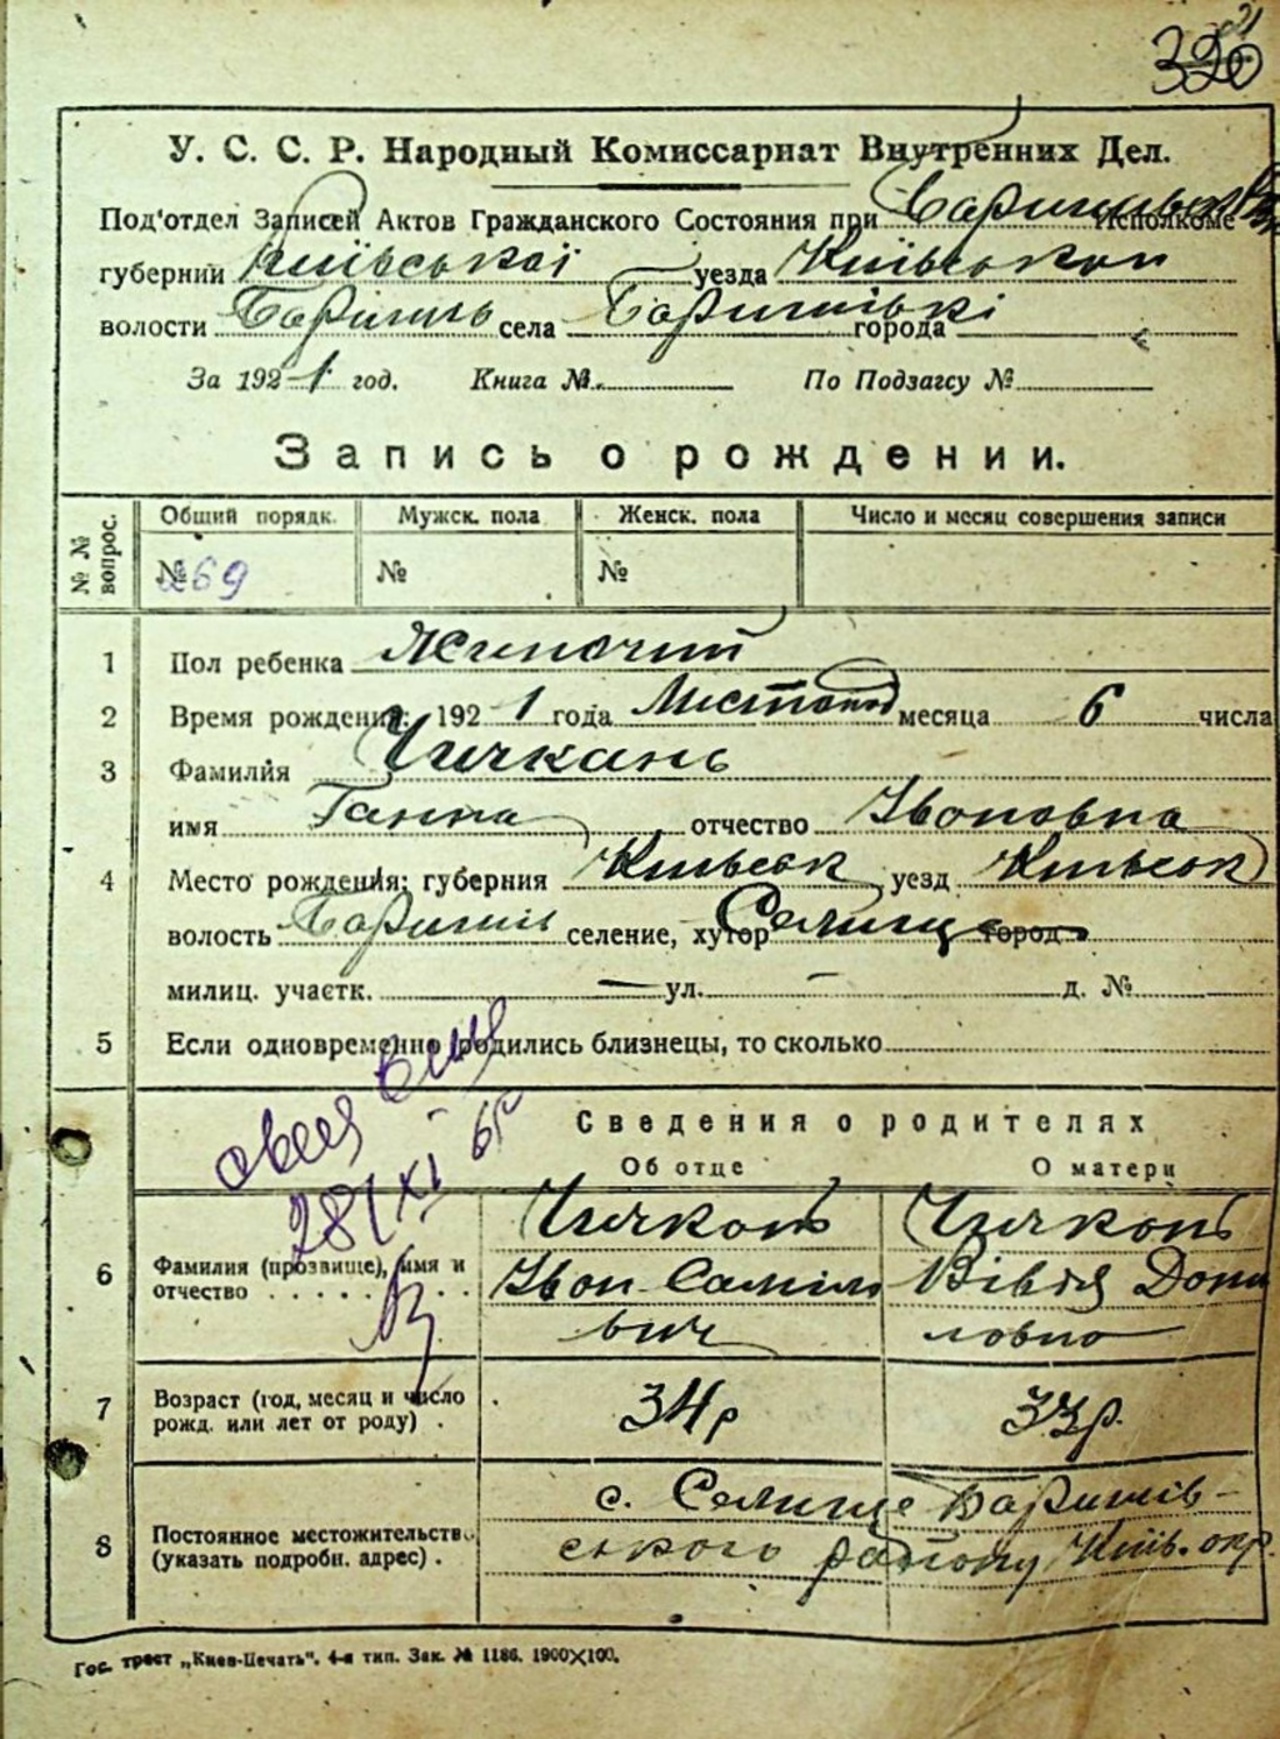 320
У. С. С. Р. Народный Комиссариат Внутренних Дел.
Под'отдел Записей Актов Гражданского Состояния при Исполкоме
губернии Київської уезда Київської
волости Баришів села Баришівкі города
За 1921 год. Книга № По Подзагсу №
Запись о рождении.
№ № вопрос. Общий порядк. Мужск. пола Женск. пола Число и месяц совершения записи
№ 269 № №
1 Пол ребенка Жиночий
2 Время рождения: 1921 года Листопад месяца 6 числа
3 Фамилия Чичкань
имя Ганна отчество Івановна
4 Место рождения: губерния Київськ уезд Київськ
волость Баришів селение, хутор Селище город
милиц. участк. — ул. — д. №
5 Если одновременно родились близнецы, то сколько
28/XI 65
Сведения о родителях
Об отце О матери
6 Фамилия (прозвище), имя и отчество . . . . . . .
Чичкань
Іван Саміло
вич
Чичкань
Вівдя Дани
ловна
7 Возраст (год, месяц и число рожд. или лет от роду) . 34р 33р.
8 Постоянное местожительство (указать подробн. адрес) .
с. Селище Баришів-
ського району Київ. окр.
Гос. трест „Киев-Печать". 4-я тип. Зак. № 1186. 1900×100.